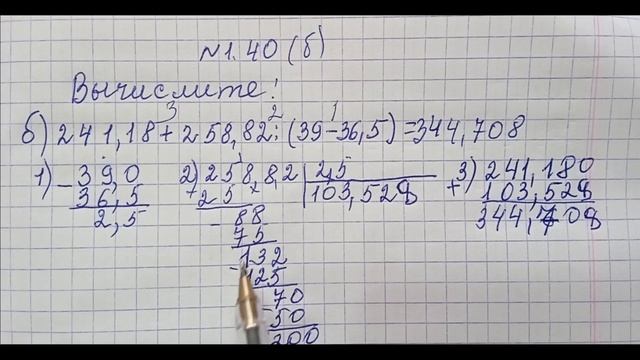 №1.40 (б)
Вычислите!
б) 241,18 + 258,82 : (39 - 36,5) = 344,708
3 2 1
1) 39,0 2) 258,8,2 | 2,5 3) 241,180
- 36,5 - 25 103,528 + 103,528
2,5 - 88 344,708
75
- 132
125
- 70
50
200